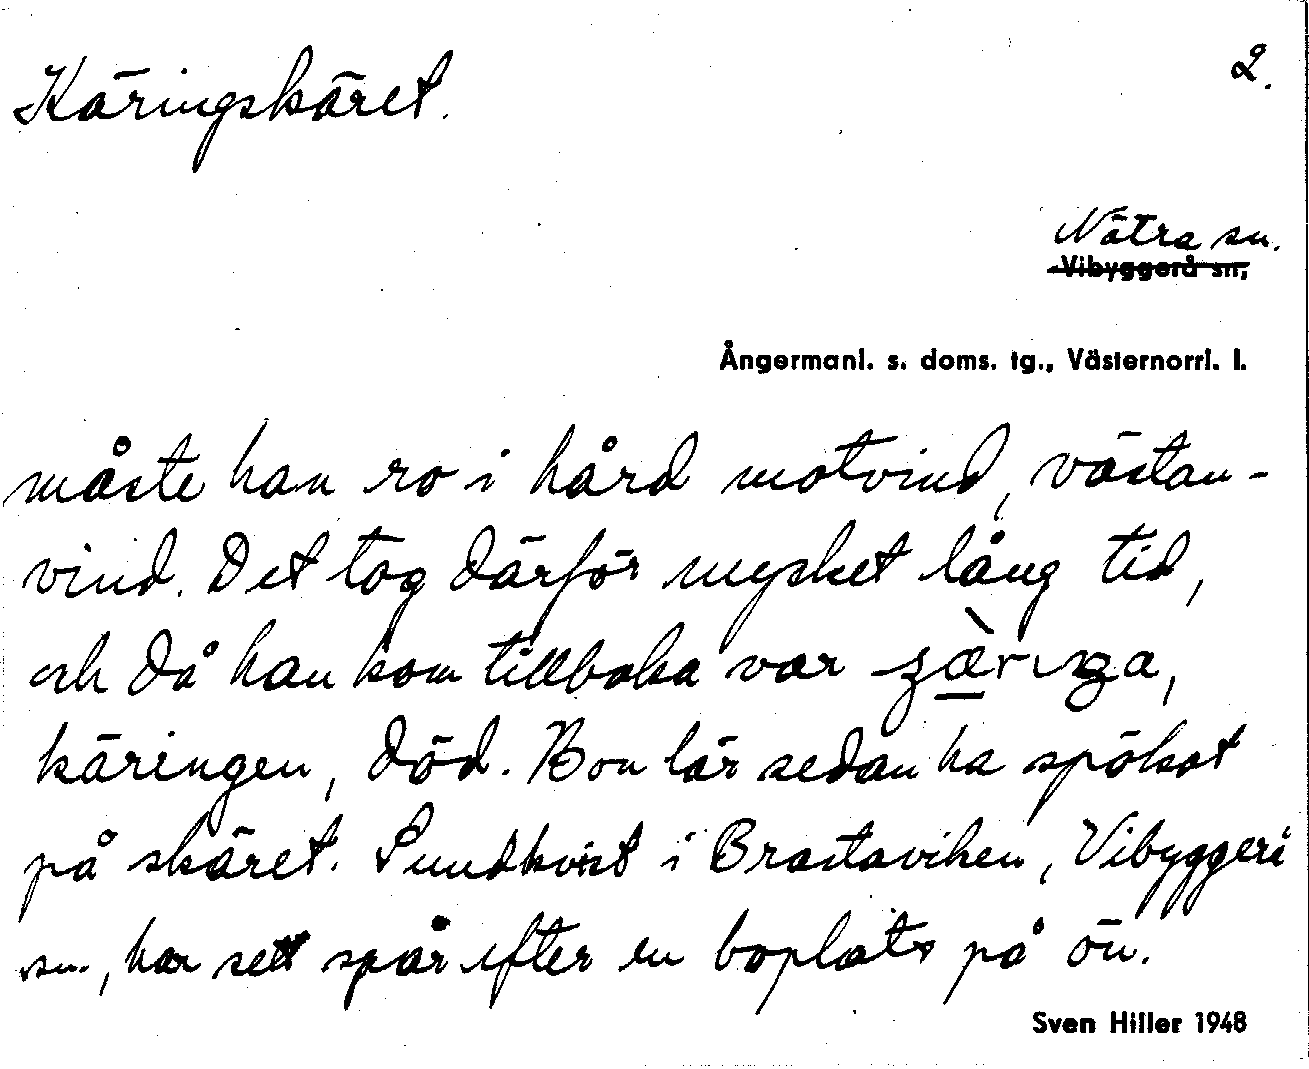 Käringskäret.
2.
Nätra sn.
Vibyggerå sn,
Ångermanl. s. doms. tg., Västernorrl. l.
måste han ro i hård motvind, västan-
vind. Det tog därför mycket lång tid,
och då han kom tillbaka var
käringen, död. Hon lär sedan ha spökat
på skäret. Sundkvist i Brastaviken, Vibyggerå
sn., har sett spår efter en boplats på ön.
Sven Hiller 1948